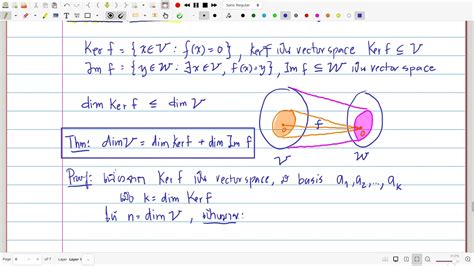 Ker f = {x∈V : f(x)=0}, Ker f เป็น vector space Ker f ⊆ V
Im f = {y∈W : ∃x∈V, f(x)=y}, Im f ⊆ W เป็น vector space
dim Ker f ≤ dim V
f
V
W
Thm: dim V = dim Ker f + dim Im f
Proof: เนื่องจาก Ker f เป็น vector space, มี basis a₁, a₂, ..., aₖ
เมื่อ k = dim Ker f
ให้ n = dim V,